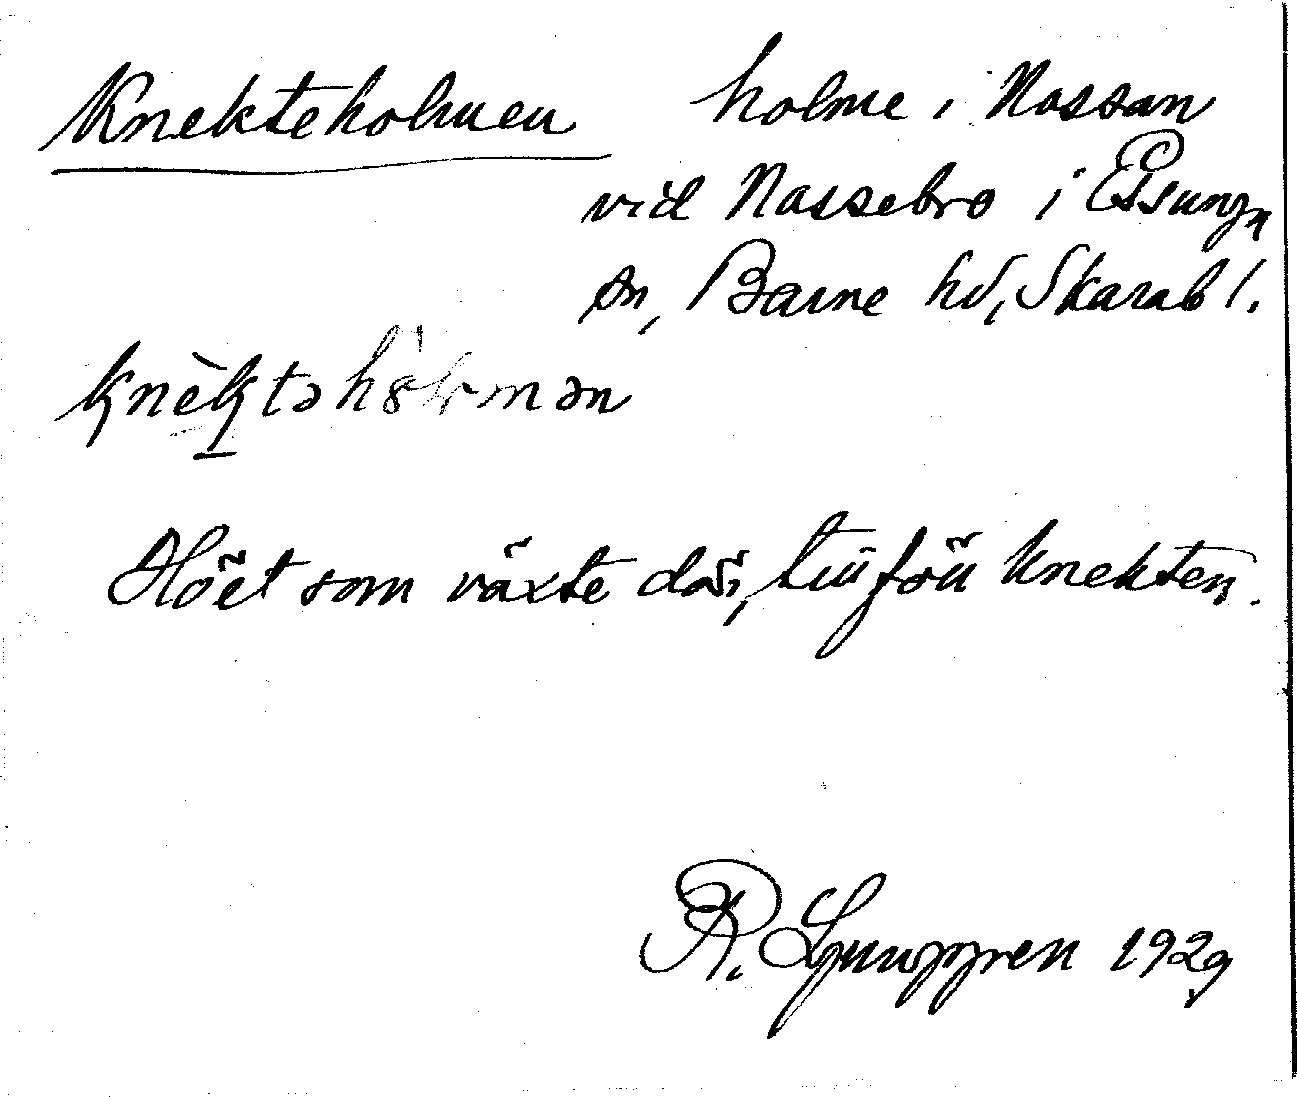 Knekteholmen holme i Nossan
vid Nossebro i Essunga
sn, Barne hd, Skarab l.
Höet som växte där, tillföll knekten.
R. Ljunggren 1929